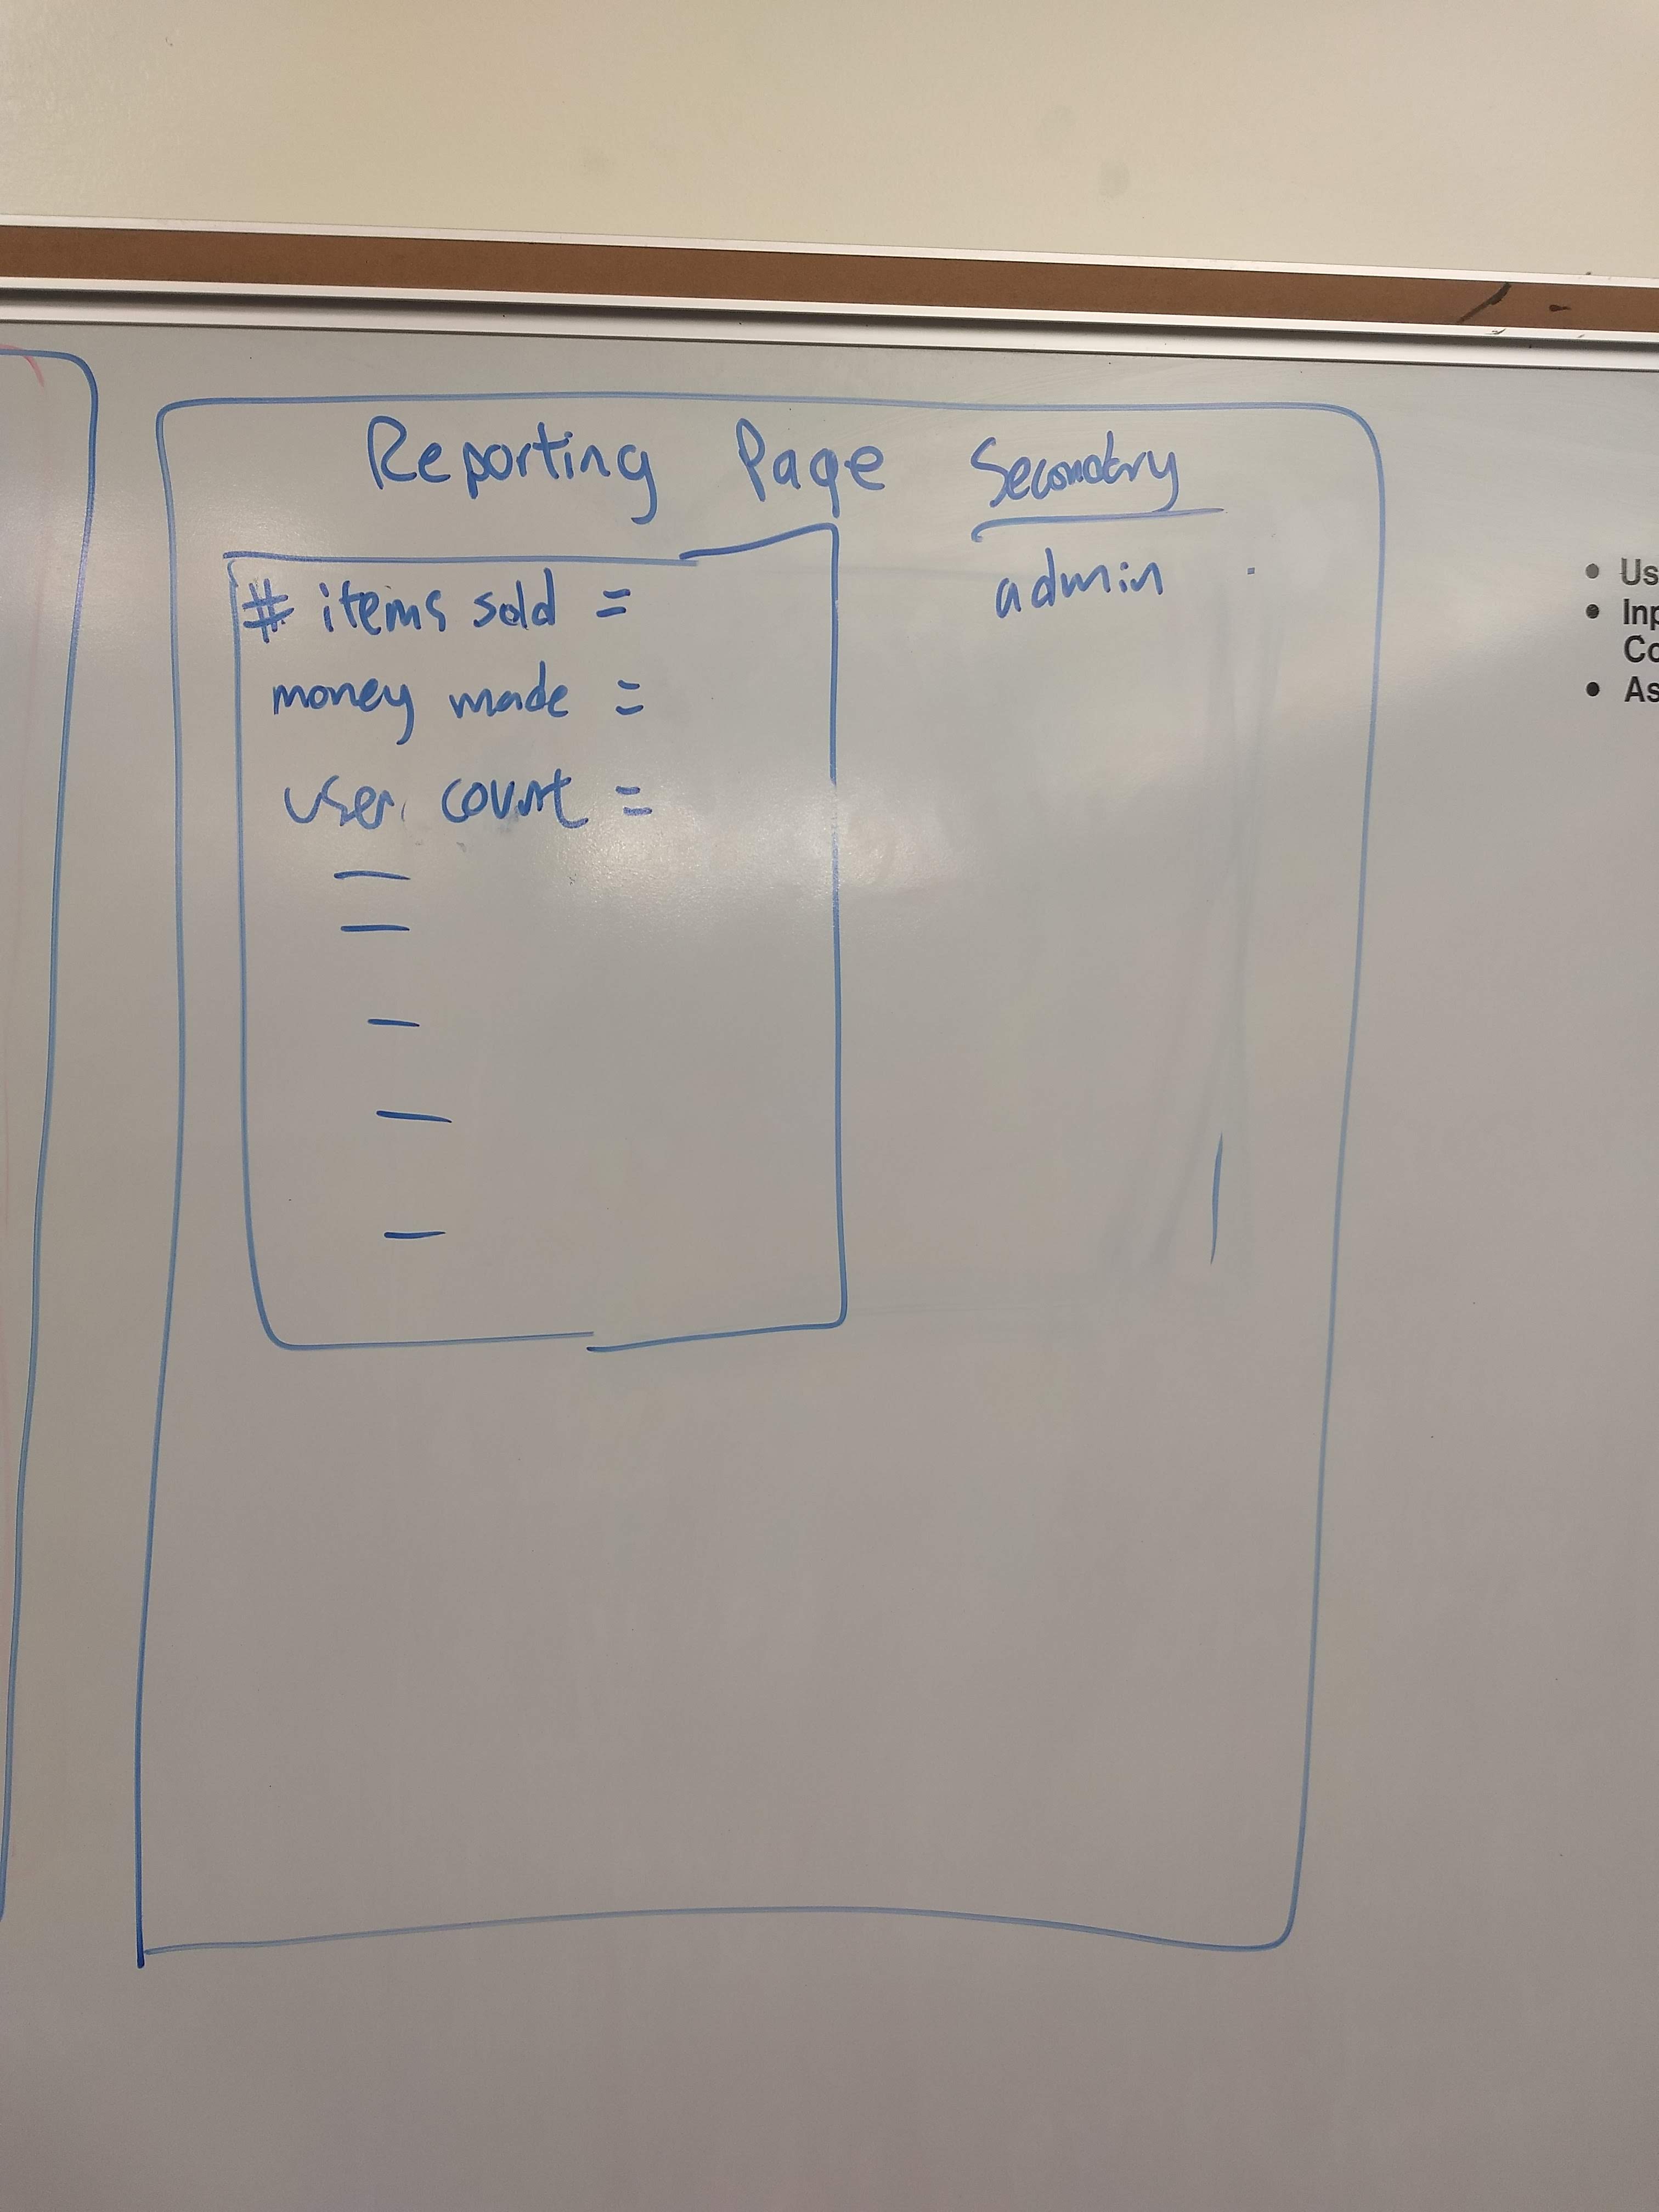 Reporting Page Secondary
admin
# items sold =
money made =
user count =
—
—
—
—
—
• Us
• Inp
Co
• As